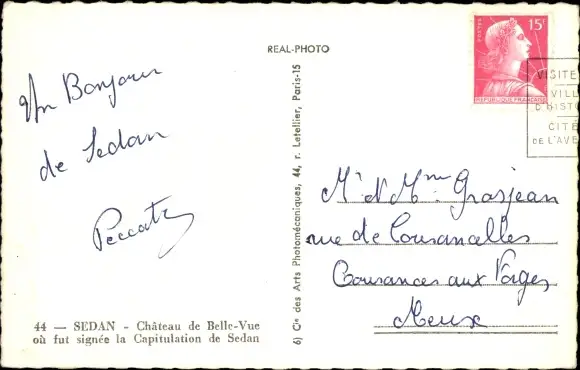 REAL-PHOTO
Un Bonjour
de Sedan
44 — SEDAN - Château de Belle-Vue
où fut signée la Capitulation de Sedan
6) Cie des Arts Photomécaniques, 44, r. Letellier, Paris-15
POSTES
15F
REPUBLIQUE FRANÇAISE
VISITE
VILL
D'HISTO
CITÉ
DE L'AVE
Mr & Mme Grosjean
rue de Cousancelles
Cousances aux Forges
Meuse